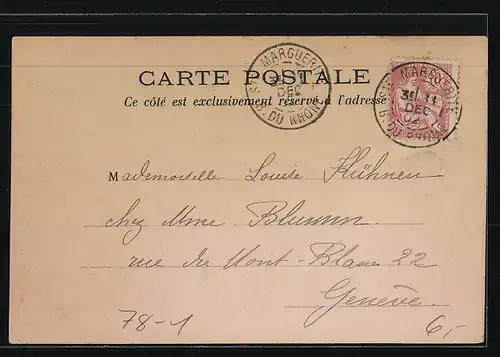 CARTE POSTALE
Ce côté est exclusivement réservé à l'adresse
STE MARGUERITE
DEC
B. DU RHONE
STE MARGUERITE
3E 11
DEC
02
B. DU RHONE
Mademoiselle Louise Kühnen
chez Mme Blumm
rue du Mont-Blanc 22
Genève.
78-1
6,-